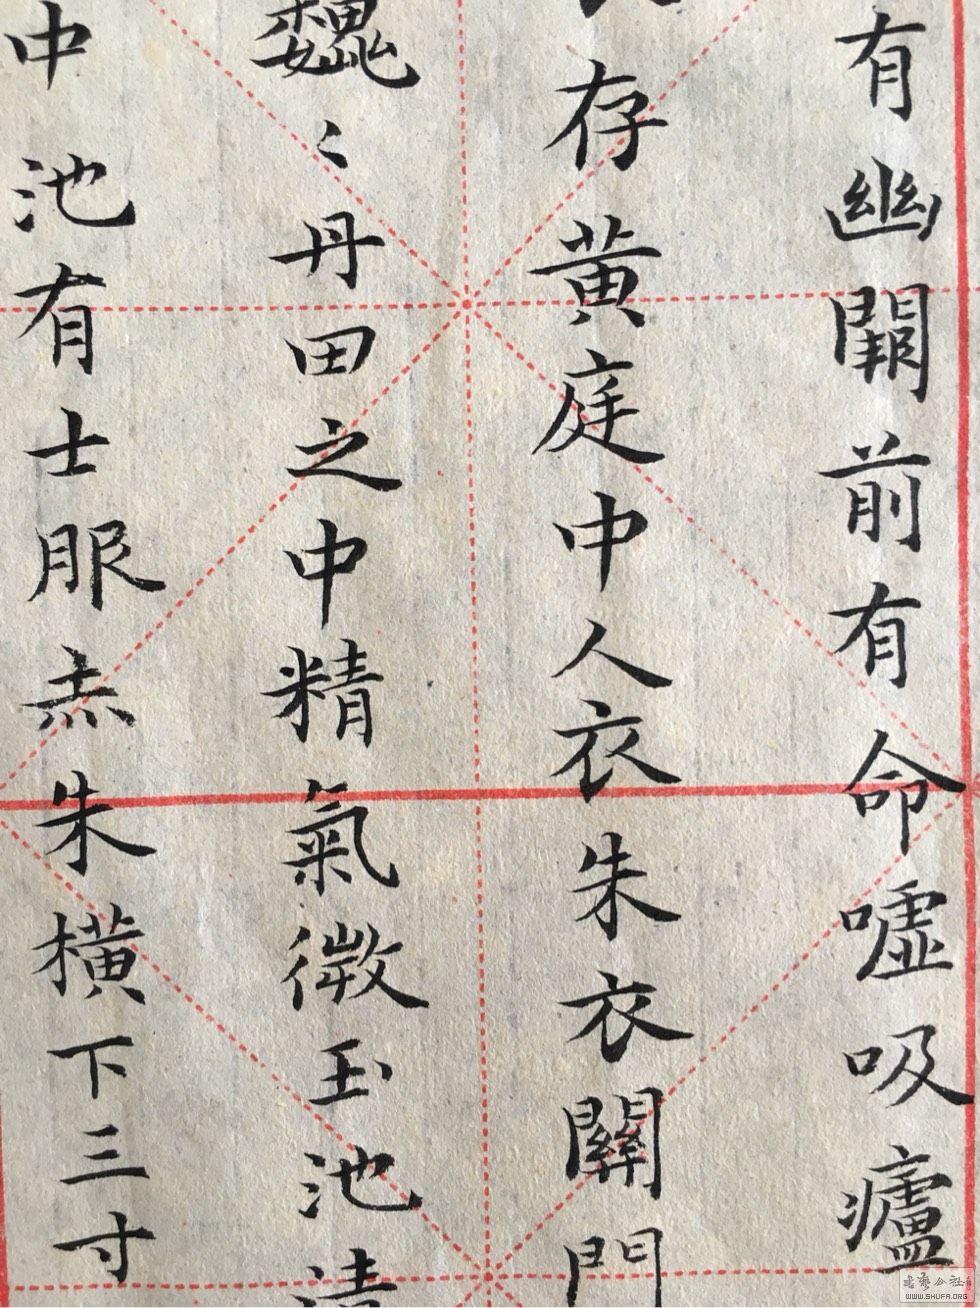 有幽闕前有命噓吸廬
存黃庭中人衣朱衣關門
巍〻丹田之中精氣微玉池清
中池有士服赤朱橫下三寸
WWW.SHUFA.ORG